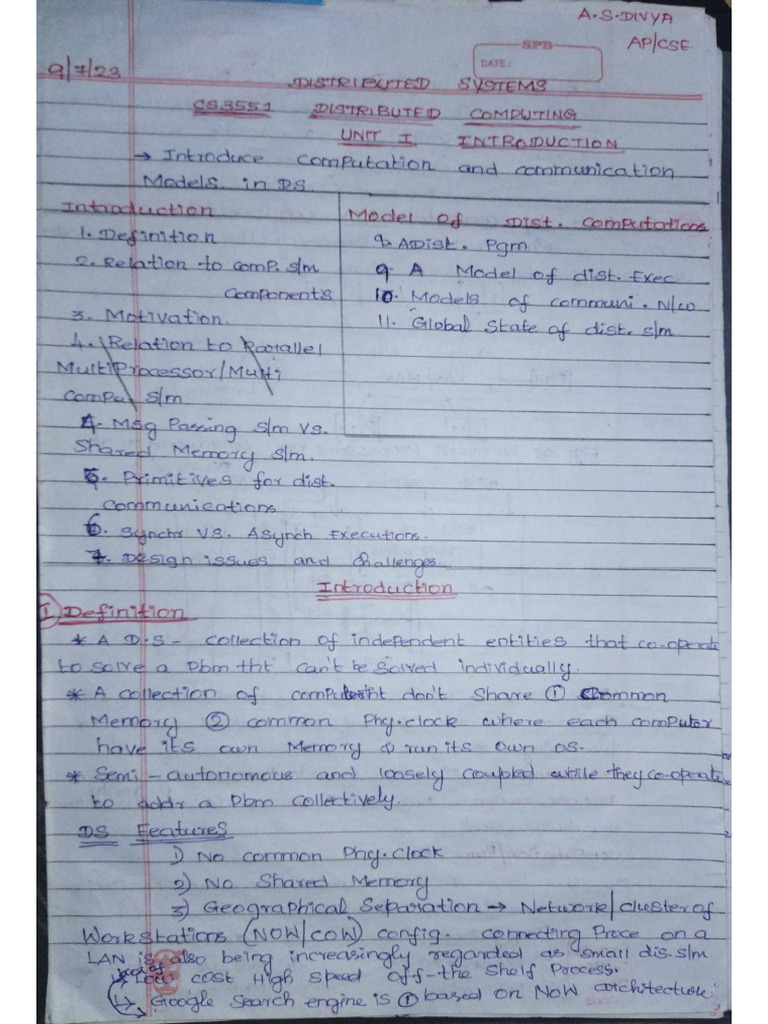 A.S.DIVYA
AP/CSE
SPB
DATE:
9/7/23
DISTRIBUTED SYSTEMS
CS3551 DISTRIBUTED COMPUTING
UNIT I INTRODUCTION
→ Introduce computation and communication
Models in DS
Introduction
1. Definition
2. Relation to comp. s/m
components
3. Motivation.
4. Relation to Parallel
MultiProcessor/Multi
Compu s/m
4. Msg Passing s/m vs.
Shared Memory s/m.
5. Primitives for dist.
communications
6. Synchr vs. Asynch Executions.
7. Design issues and challenges
Model of Dist. Computations
8. A Dist. Pgm
9. A Model of dist. Exec
10. Models of communi. N/w
11. Global State of dist. s/m
Introduction
1 Definition
* A D.S - collection of independent entities that co-operate
to solve a Pbm tht can't be solved individually.
* A collection of computers tht don't share ① Common
Memory ② common Phy.clock where each computer
have its own Memory & run its own os.
* Semi-autonomous and loosely coupled while they co-operate
to addr a Pbm collectively.
DS Features
1) No common Phy.clock
2) No Shared Memory
3) Geographical Separation → Network/cluster of
Workstations (NOW/COW) config. connecting Proce on a
LAN is also being increasingly regarded as small dis.s/m
Low cost High speed off-the shelf Process.
↳ Google Search engine is based on NOW architecture.